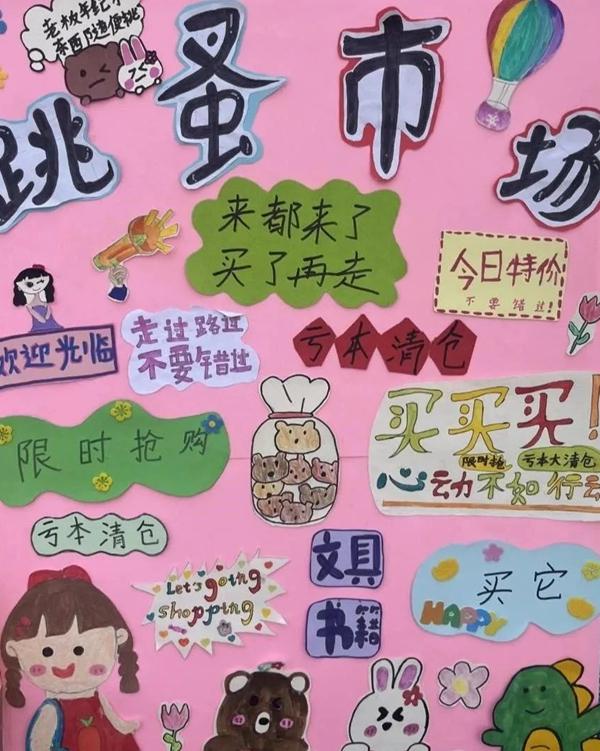 老板年纪小
东西随便挑
跳蚤市场
来都来了
买了再走
今日特价
不要错过!
欢迎光临
走过路过
不要错过
亏本清仓
限时抢购
买买买!
限时抢
亏本大清仓
心动不如行动
亏本清仓
Let's going
shopping
文具
书籍
买它
HAPPY